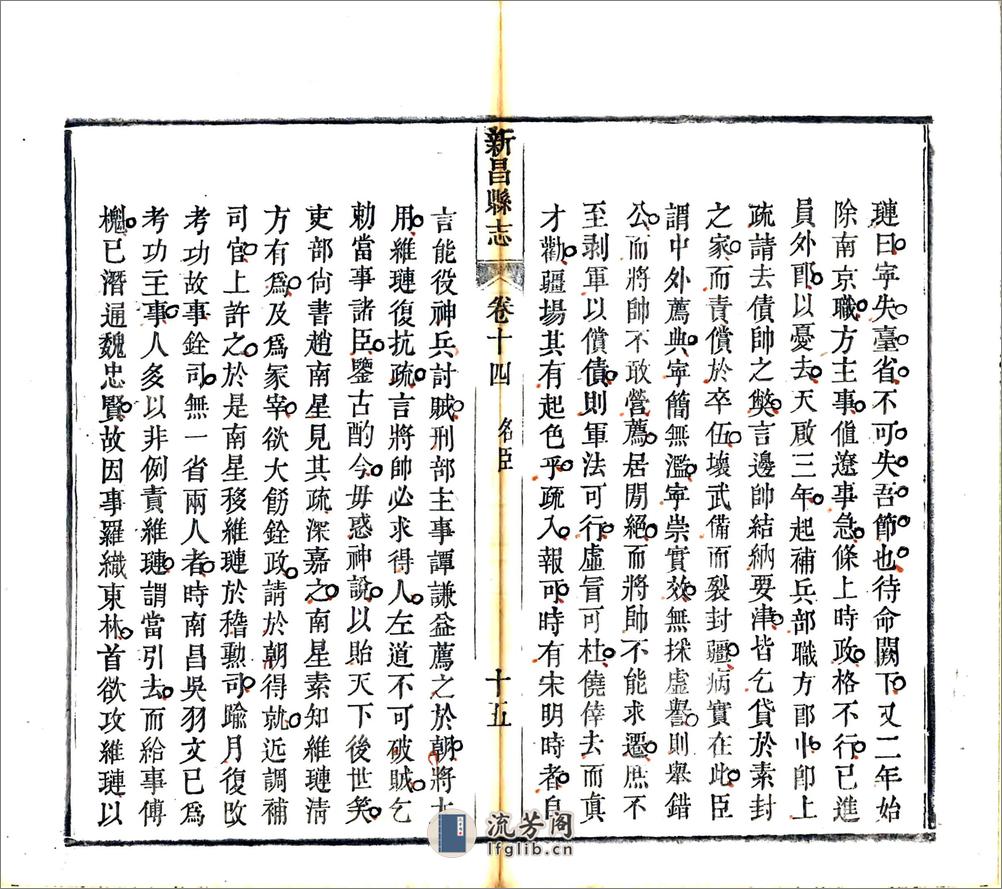 璉曰寜失臺省不可失吾節也待命闕下又二年始
除南京職方主事值遼事急條上時政格不行已進
員外郎以憂去天啟三年起補兵部職方郎中卽上
疏請去債帥之獘言邊帥結納要津皆乞貸於素封
之家而責償於卒伍壞武備而裂封疆病實在此臣
謂中外薦典寜簡無濫寜崇實效無採虛譽則舉錯
公而將帥不敢營薦居閒絕而將帥不能求遷庶不
至剥軍以償債則軍法可行虛冒可杜僥倖去而真
才勸疆場其有起色乎疏入報可時有宋明時者自
新昌縣志 卷十四 名臣 十五
言能役神兵討賊刑部主事譚謙益薦之於朝將大
用維璉復抗疏言將帥必求得人左道不可破賊乞
勅當事諸臣鑒古酌今毋惑神說以貽天下後世笑
吏部尚書趙南星見其疏深嘉之南星素知維璉淸
方有爲及爲冢宰欲大飭銓政請於朝得就近調補
司官上許之於是南星移維璉於稽勳司踰月復改
考功故事銓司無一省兩人者時南昌吳羽文已爲
考功主事人多以非例責維璉謂當引去而給事傅
櫆已潛通魏忠賢故因事羅織東林首欲攻維璉以
流芳阁
lfglib.cn